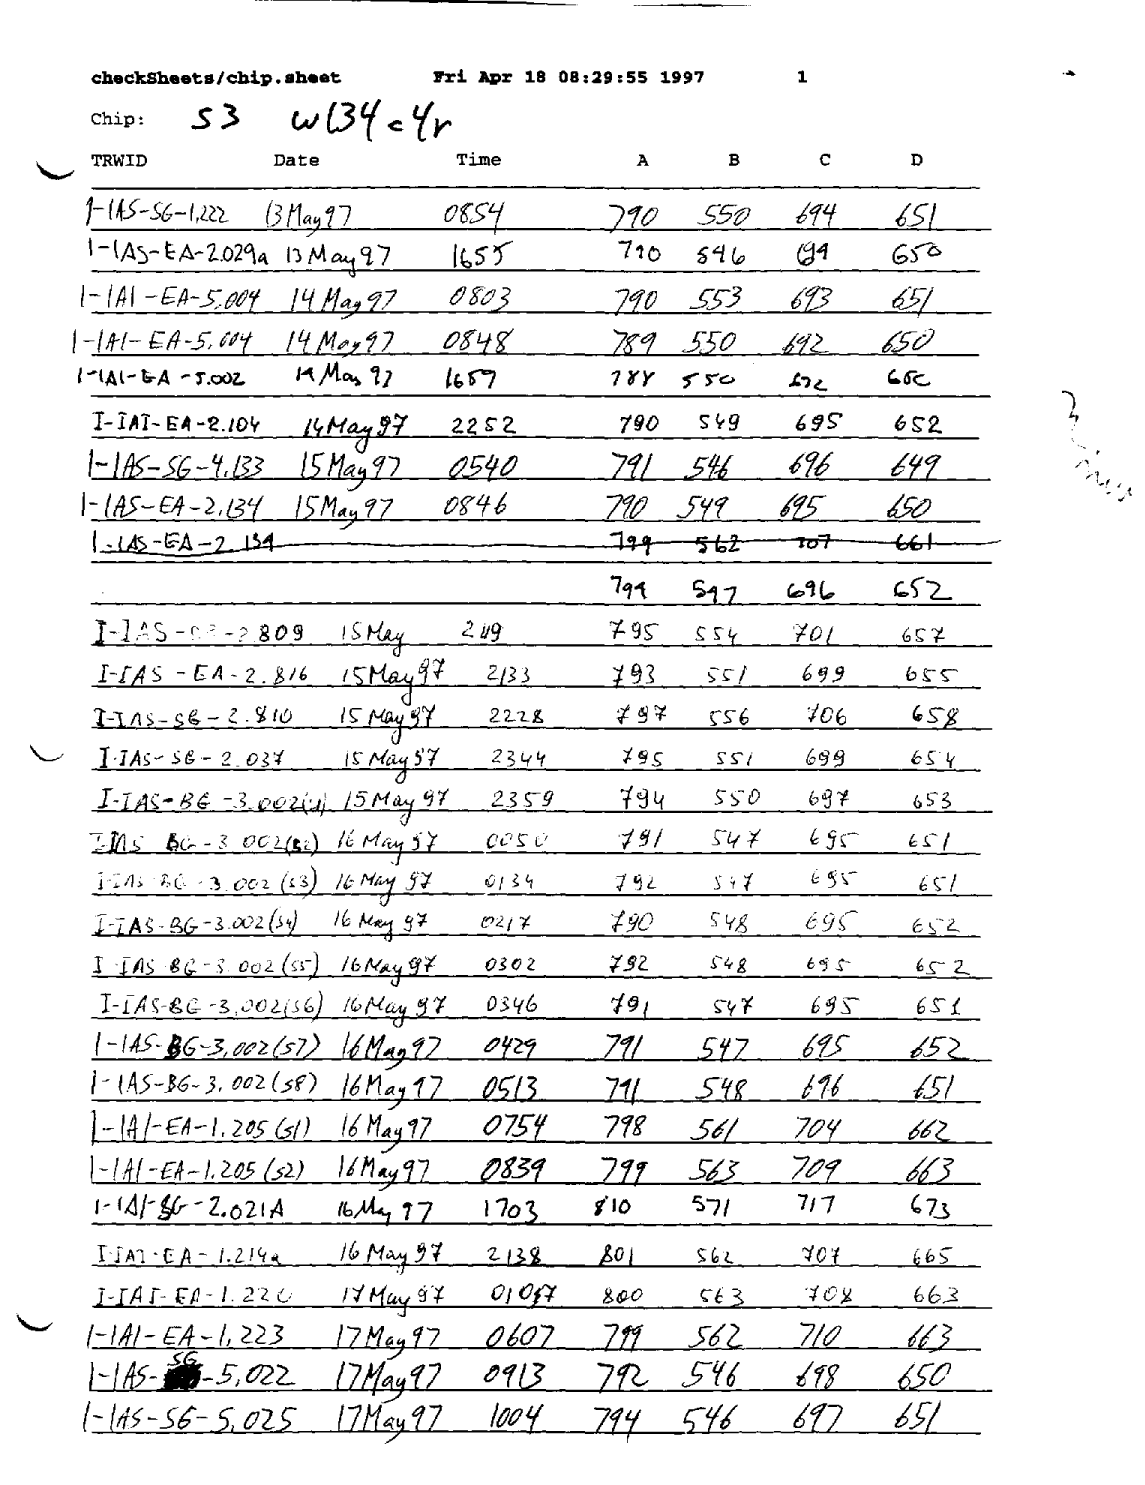 checkSheets/chip.sheet Fri Apr 18 08:29:55 1997 1
Chip: S3 w134c4r
TRWID Date Time A B C D
1-1AS-SG-1,222 13May97 0854 790 550 694 651
1-1AS-EA-2.029a 13May97 1655 790 546 694 650
1-1A1-EA-5.004 14May97 0803 790 553 693 651
1-1A1-EA-5,004 14May97 0848 789 550 692 650
1-1A1-EA-5.002 14May97 1657 788 550 692 650
I-IAI-EA-2.104 14May97 2252 790 549 695 652
1-1AS-SG-4.133 15May97 0540 791 546 696 649
1-1AS-EA-2,134 15May97 0846 790 549 695 650
1-1AS-EA-2 134 799 562 707 661
799 547 696 652
I-IAS- -2809 15May 795 554 701 657
I-IAS-EA-2.816 15May97 2133 793 551 699 655
I-IAS-SG-2.810 15May97 2228 797 556 706 658
I-IAS-SG-2.037 15May97 2344 795 551 699 654
I-IAS-BG-3.002(s1) 15May97 2359 794 550 697 653
IIAS BG-3 002(s2) 16May97 0050 791 547 695 651
I-IAS BG-3.002(s3) 16May97 0134 792 547 695 651
I-IAS-BG-3.002(s4) 16May97 0217 790 548 695 652
I-IAS BG-3.002(s5) 16May97 0302 792 548 695 652
I-IAS-BG-3.002(s6) 16May97 0346 791 547 695 651
1-1AS-BG-3,002(s7) 16May97 0429 791 547 695 652
1-1AS-BG-3.002(s8) 16May97 0513 791 548 696 651
1-1A1-EA-1.205(s1) 16May97 0754 798 561 704 662
1-1A1-EA-1.205(s2) 16May97 0839 799 563 709 663
1-1A1-SG-2.021A 16May97 1703 810 571 717 673
I-IAI-EA-1.214a 16May97 2138 801 562 707 665
I-IAI-EA-1.220 17May97 0107 800 563 708 663
1-1A1-EA-1,223 17May97 0607 799 562 710 663
1-1AS-SG-5,022 17May97 0913 792 546 698 650
1-1AS-SG-5.025 17May97 1004 794 546 697 651